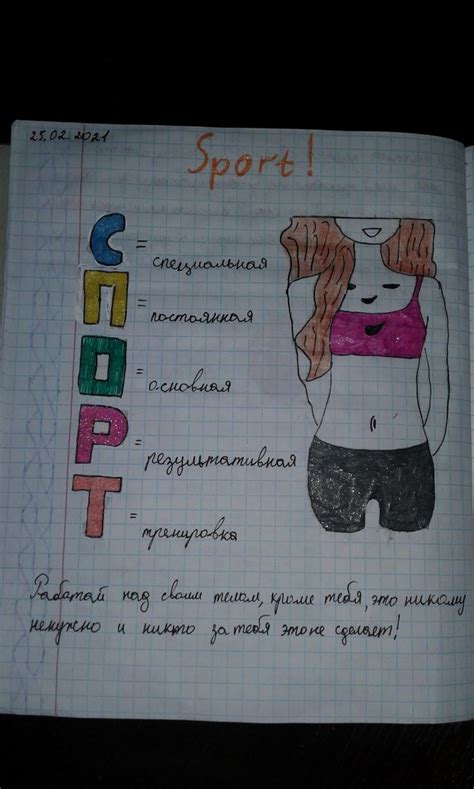 25.02.2021
Sport!
С = специальная
П = постоянная
О = основная
Р = результативная
Т = тренировка
Работай над своим телом, кроме тебя, это никому
ненужно и никто за тебя это не сделает!